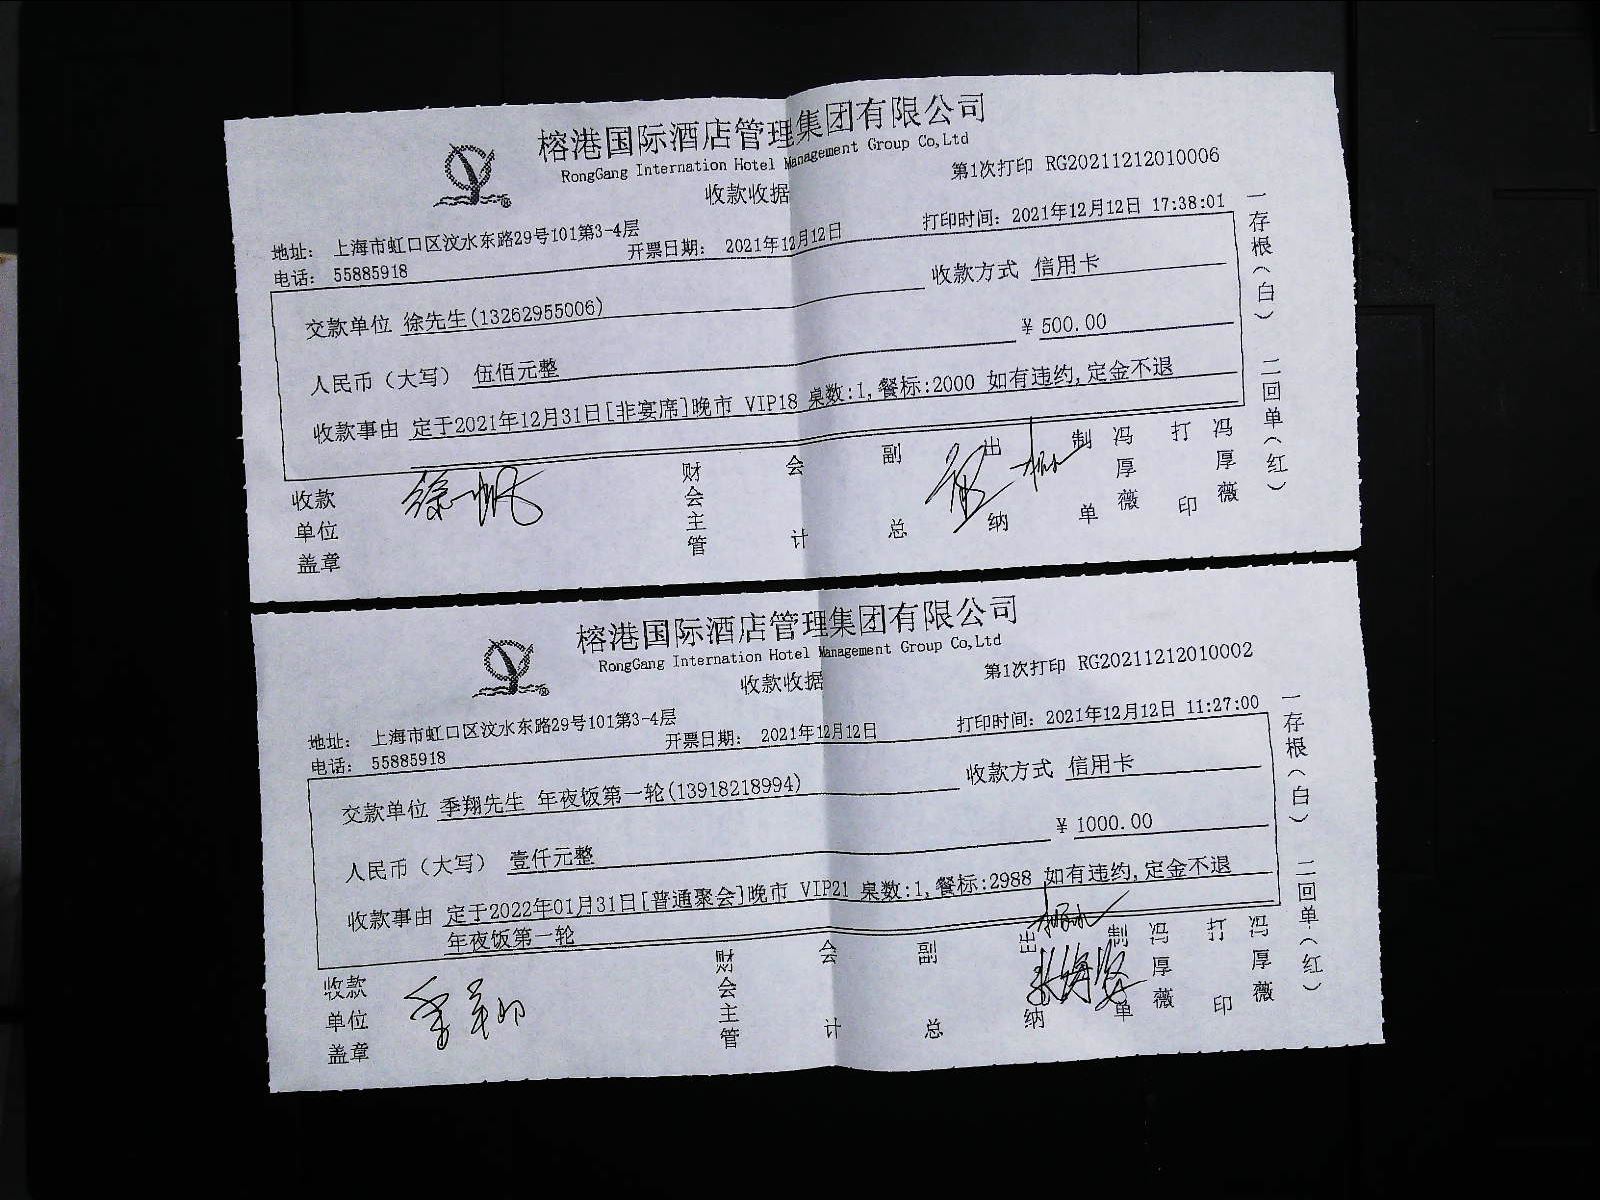 榕港国际酒店管理集团有限公司
RongGang Internation Hotel Management Group Co,Ltd
收款收据
第1次打印 RG20211212010006
地址： 上海市虹口区汶水东路29号101第3-4层
电话： 55885918
开票日期： 2021年12月12日
打印时间：2021年12月12日 17:38:01
交款单位 徐先生(13262955006)
收款方式 信用卡
人民币（大写） 伍佰元整
￥500.00
收款事由 定于2021年12月31日[非宴席]晚市 VIP18 桌数:1,餐标:2000 如有违约,定金不退
收款单位盖章
徐一帆
财会主管
会计
副总
出纳
制单
冯厚薇
打印
冯厚薇
一存根（白） 二回单（红）
榕港国际酒店管理集团有限公司
RongGang Internation Hotel Management Group Co,Ltd
收款收据
第1次打印 RG20211212010002
地址： 上海市虹口区汶水东路29号101第3-4层
电话： 55885918
开票日期： 2021年12月12日
打印时间：2021年12月12日 11:27:00
交款单位 季翔先生 年夜饭第一轮(13918218994)
收款方式 信用卡
人民币（大写） 壹仟元整
￥1000.00
收款事由 定于2022年01月31日[普通聚会]晚市 VIP21 桌数:1,餐标:2988 如有违约,定金不退
年夜饭第一轮
收款单位盖章
季翔
财会主管
会计
副总
出纳
制单
冯厚薇
打印
冯厚薇
一存根（白） 二回单（红）